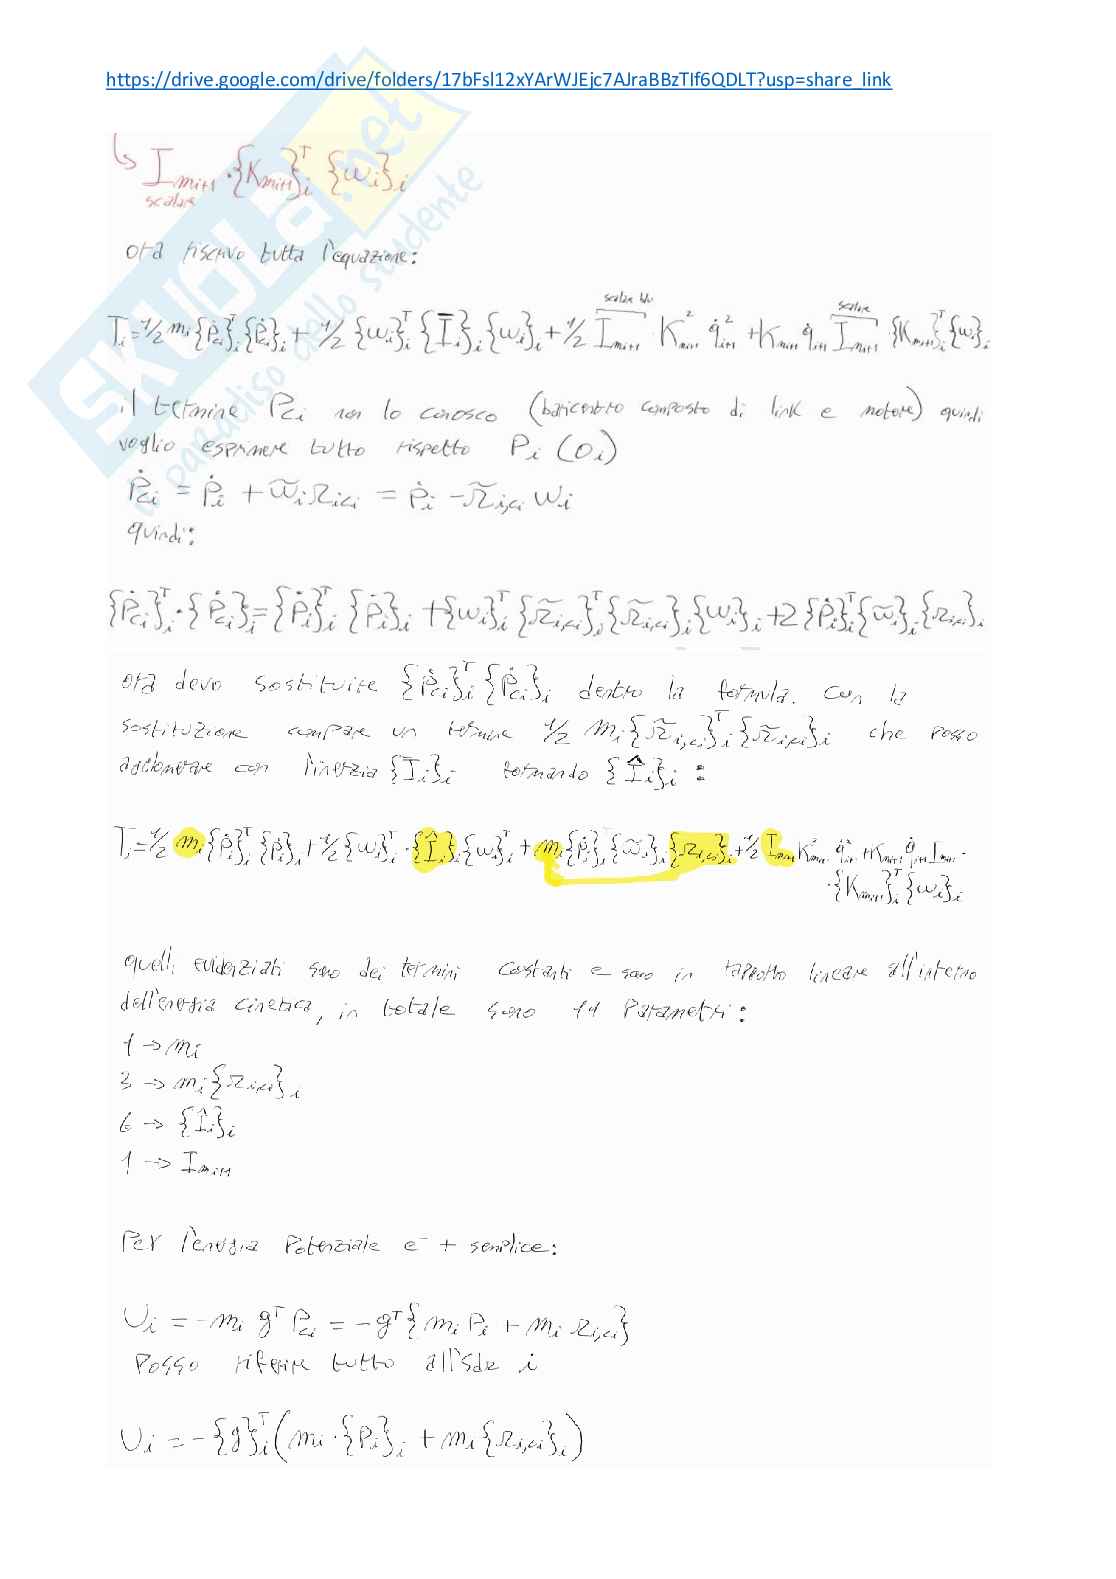 https://drive.google.com/drive/folders/17bFsl12xYArWJEjc7AJraBBzTIf6QDLT?usp=share_link
SKUOLA.net
il paradiso dello studente
↳ I_{mi+1} · {K_{mi+1}}_i^T {ω_i}_i
scalare
ora riscrivo tutta l'equazione:
scalare scalare
T_i = 1/2 m_i {ṗ_{ci}}_i^T {ṗ_{ci}}_i + 1/2 {ω_i}_i^T {Ī_i}_i {ω_i}_i + 1/2 I_{mi+1} · K_{mi+1}^2 q̇_{i+1}^2 + K_{mi+1} q̇_{i+1} I_{mi+1} {K_{mi+1}}_i^T {ω_i}_i
il termine P_{ci} non lo conosco (baricentro composto di link e motore) quindi
voglio esprimere tutto rispetto P_i (O_i)
ṗ_{ci} = ṗ_i + ω̃_i r_{i,ci} = ṗ_i - r̃_{i,ci} ω_i
quindi:
{ṗ_{ci}}_i^T · {ṗ_{ci}}_i = {ṗ_i}_i^T {ṗ_i}_i + {ω_i}_i^T {r̃_{i,ci}}_i^T {r̃_{i,ci}}_i {ω_i}_i + 2 {ṗ_i}_i^T {ω̃_i}_i {r_{i,ci}}_i
ora devo sostituire {ṗ_{ci}}_i^T {ṗ_{ci}}_i dentro la formula. Con la
sostituzione compare un termine 1/2 m_i {r̃_{i,ci}}_i^T {r̃_{i,ci}}_i che posso
accorpare con l'inerzia {I_i}_i formando {Î_i}_i :
T_i = 1/2 m_i {ṗ_i}_i^T {ṗ_i}_i + 1/2 {ω_i}_i^T · {Î_i}_i {ω_i}_i^T + m_i {ṗ_i}_i^T {ω̃_i}_i {r_{i,ci}}_i + 1/2 I_{mi+1} K_{mi+1}^2 q̇_{i+1}^2 + K_{mi+1} q̇_{i+1} I_{mi+1} ·
· {K_{mi+1}}_i^T {ω_i}_i
quelli evidenziati sono dei termini costanti e sono in rapporto lineare all'interno
dell'energia cinetica, in totale sono 11 parametri:
1 → m_i
3 → m_i {r_{i,ci}}_i
6 → {Î_i}_i
1 → I_{mi+1}
Per l'energia potenziale e' + semplice:
U_i = -m_i g^T P_{ci} = -g^T {m_i P_i + m_i r_{i,ci}}
Posso riferire tutto all'SdR i
U_i = -{g}_i^T (m_i · {P_i}_i + m_i {r_{i,ci}}_i)